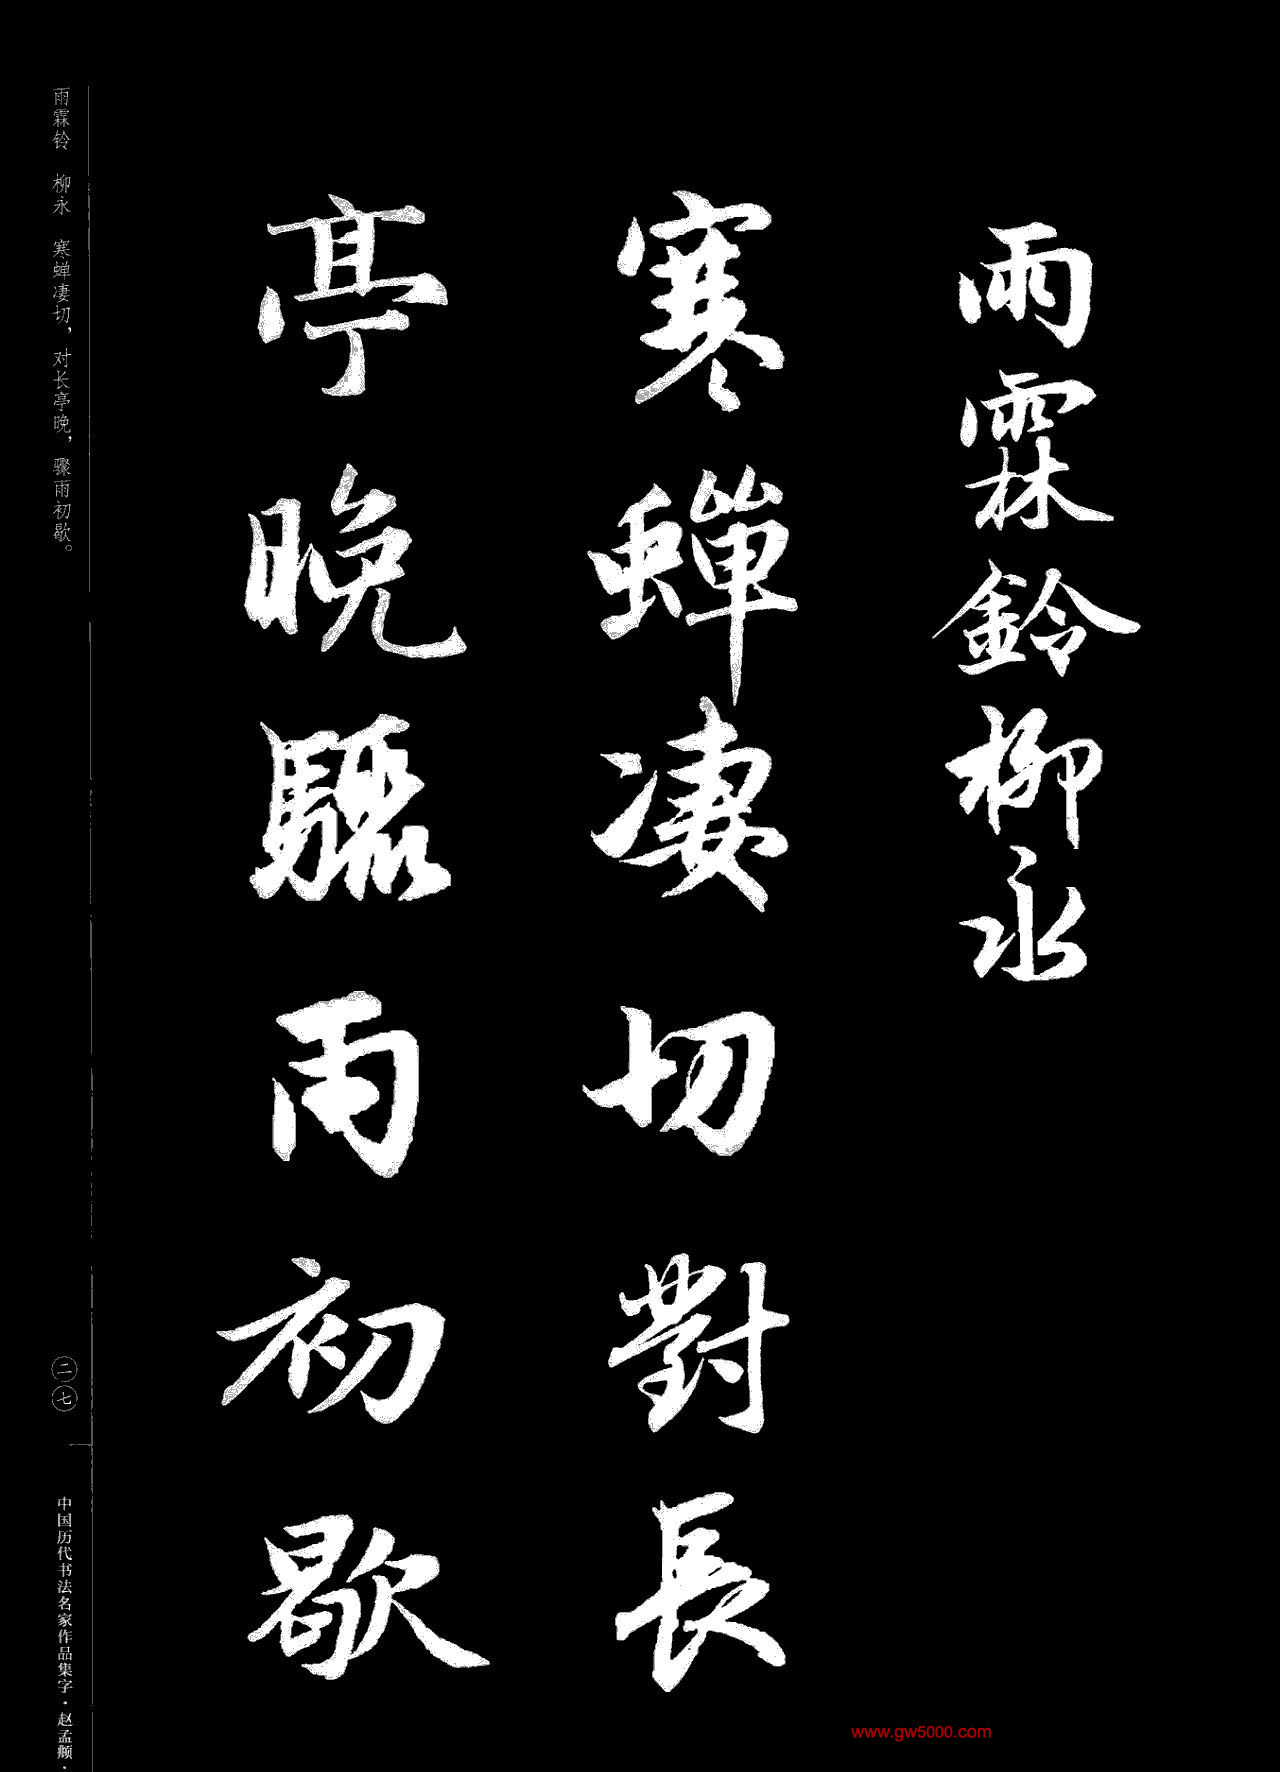 雨霖鈴柳永
寒蟬凄切對長
亭晚驟雨初歇
雨霖铃 柳永 寒蝉凄切，对长亭晚，骤雨初歇。
二七
中国历代书法名家作品集字·赵孟頫·
www.gw5000.com